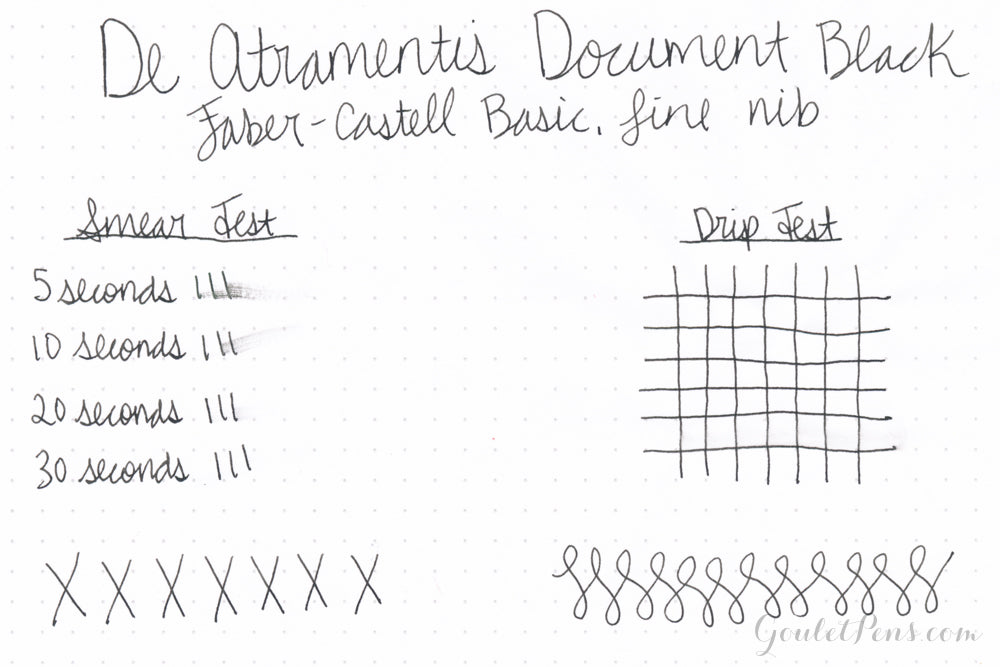 De Atramentis Document Black
Faber-Castell Basic, fine nib
Smear Test
Drip Test
5 seconds
10 seconds
20 seconds
30 seconds
X X X X X X X
GouletPens.com